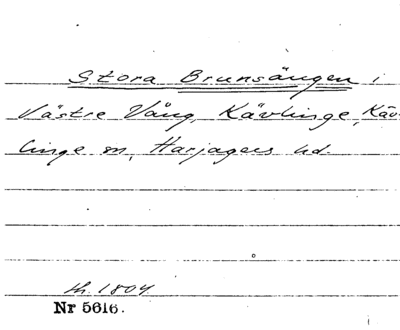 Stora Brunsängen i
Västre Vång, Kävlinge, Käv-
linge sn, Harjagers hd.
th. 1804
Nr 5616.